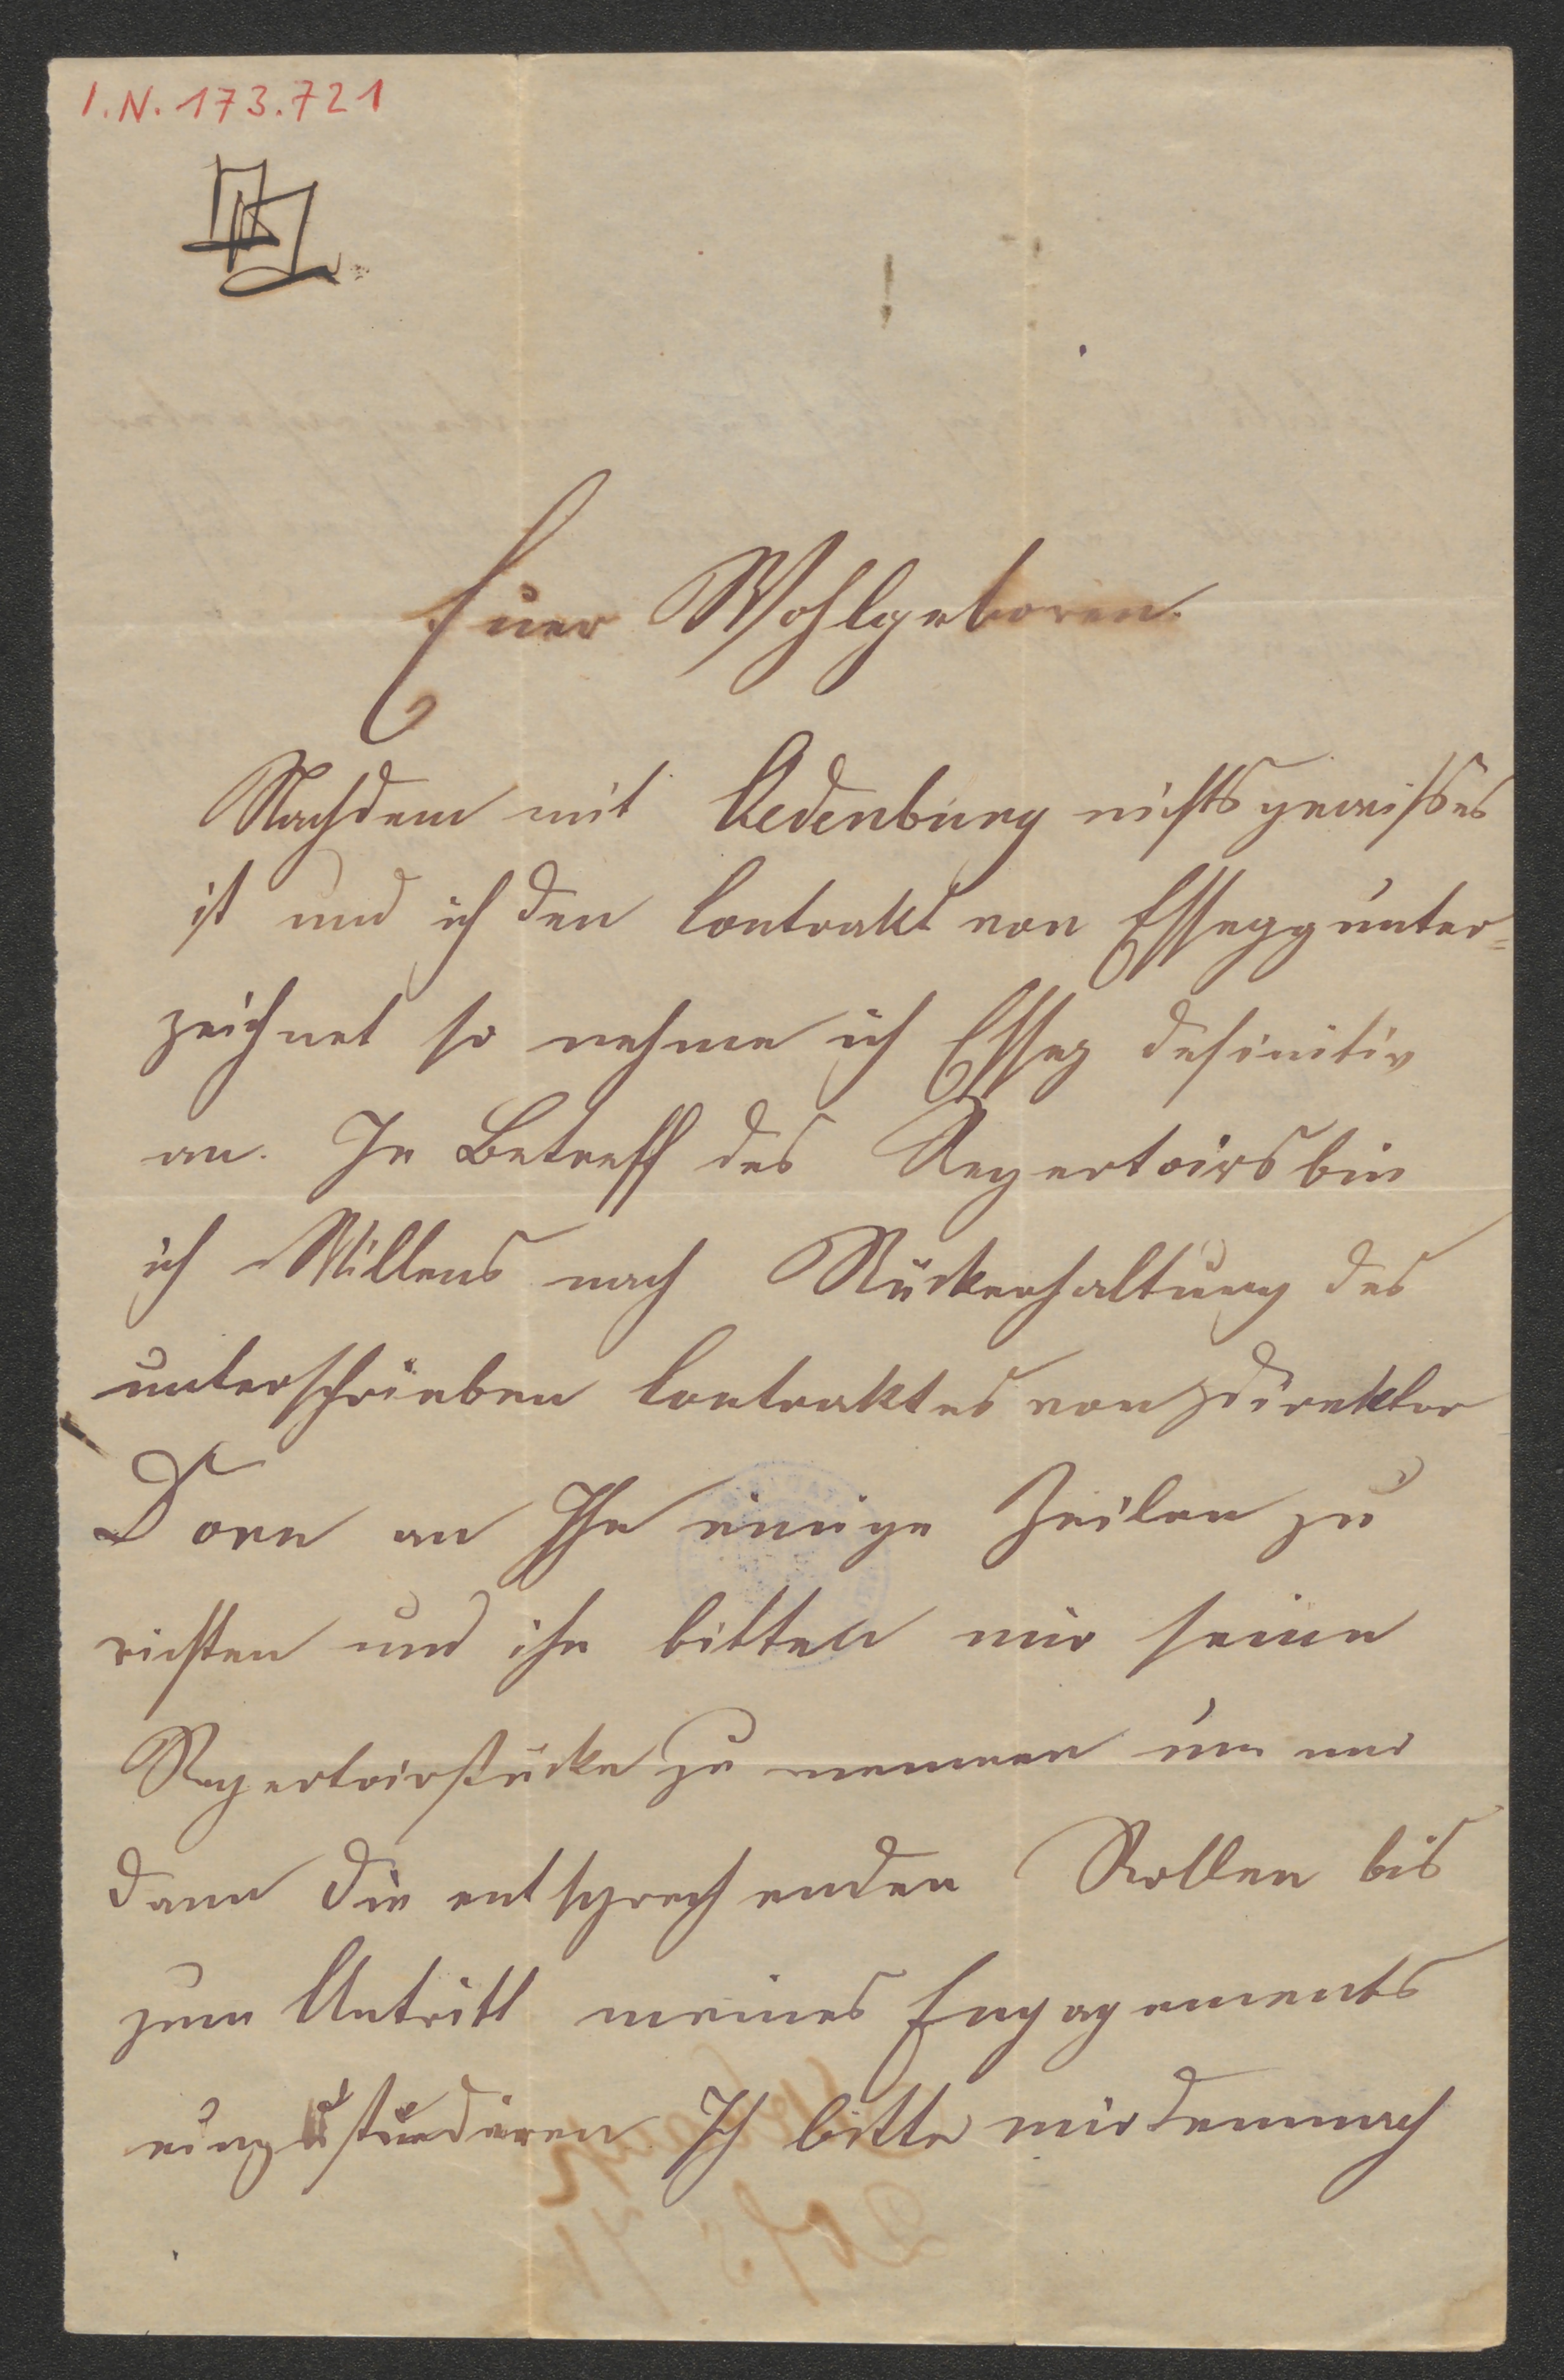 I.N. 173.721
Euer Wohlgeboren.
Nachdem mit Oedenburg nichts gewisses
ist und ich den Contrakt von Essegg unter=
zeichnet so nehme ich Esseg definitiv
an. In Betreff des Repertoirs bin
ich Willens nach Rückerhaltung des
unterschrieben Contraktes von Direktor
Dorn an Ihn einige Zeilen zu
richten und ihn bitten mir seine
Repertoirstücke zu nennen um mir
dann die entsprechenden Rollen bis
zum Antritt meines Engagements
einzustudiren. Ich bitte mir demnach